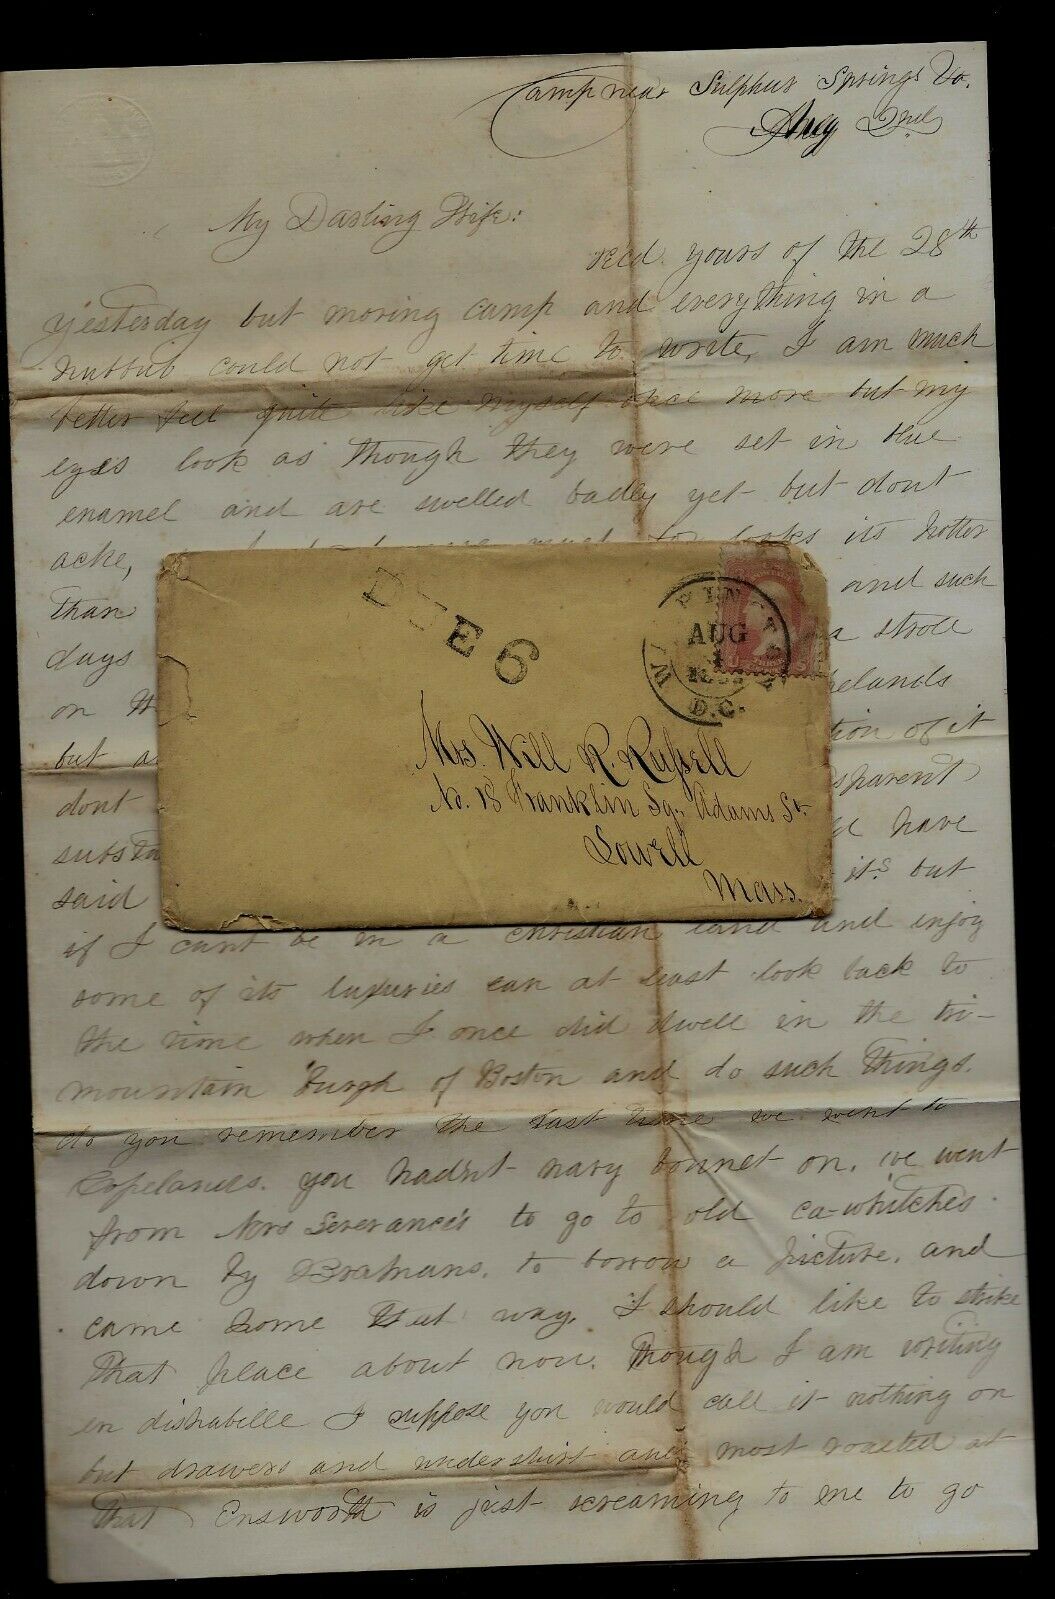 Camp near Sulphur Springs Va.
Aug 2nd
My Darling Wife:
Recd. yours of the 28th
yesterday but moving camp and everything in a
hubbub could not get time to write, I am much
better feel quite like myself once more but my
eyes look as though they were set in blue
enamel and are swelled badly yet but dont
ache, looks its hotter
than and such
days a stroll
on the pelands
but a tion of it
dont sparent
substa have
said its but
if I cant be in a christian land and enjoy
some of its luxuries can at least look back to
the time when I once did dwell in the tri-
mountain burgh of Boston and do such things.
do you remember the last time we went to
Copelands. you hadnt navy bonnet on, we went
from Mrs Severance's to go to old ca-whitches
down by to borrow a picture. and
came home that way, I should like to strike
that place about now. Though I am writing
en dishabelle I suppose you would call it nothing on
but drawers and undershirt and most roasted at
that Ensworth is just screaming to me to go
DUE 6
WASHINGTON
AUG
D.C.
Mrs. Will R. Russell
No. 18 Franklin Sq. Adams St.
Lowell
Mass.